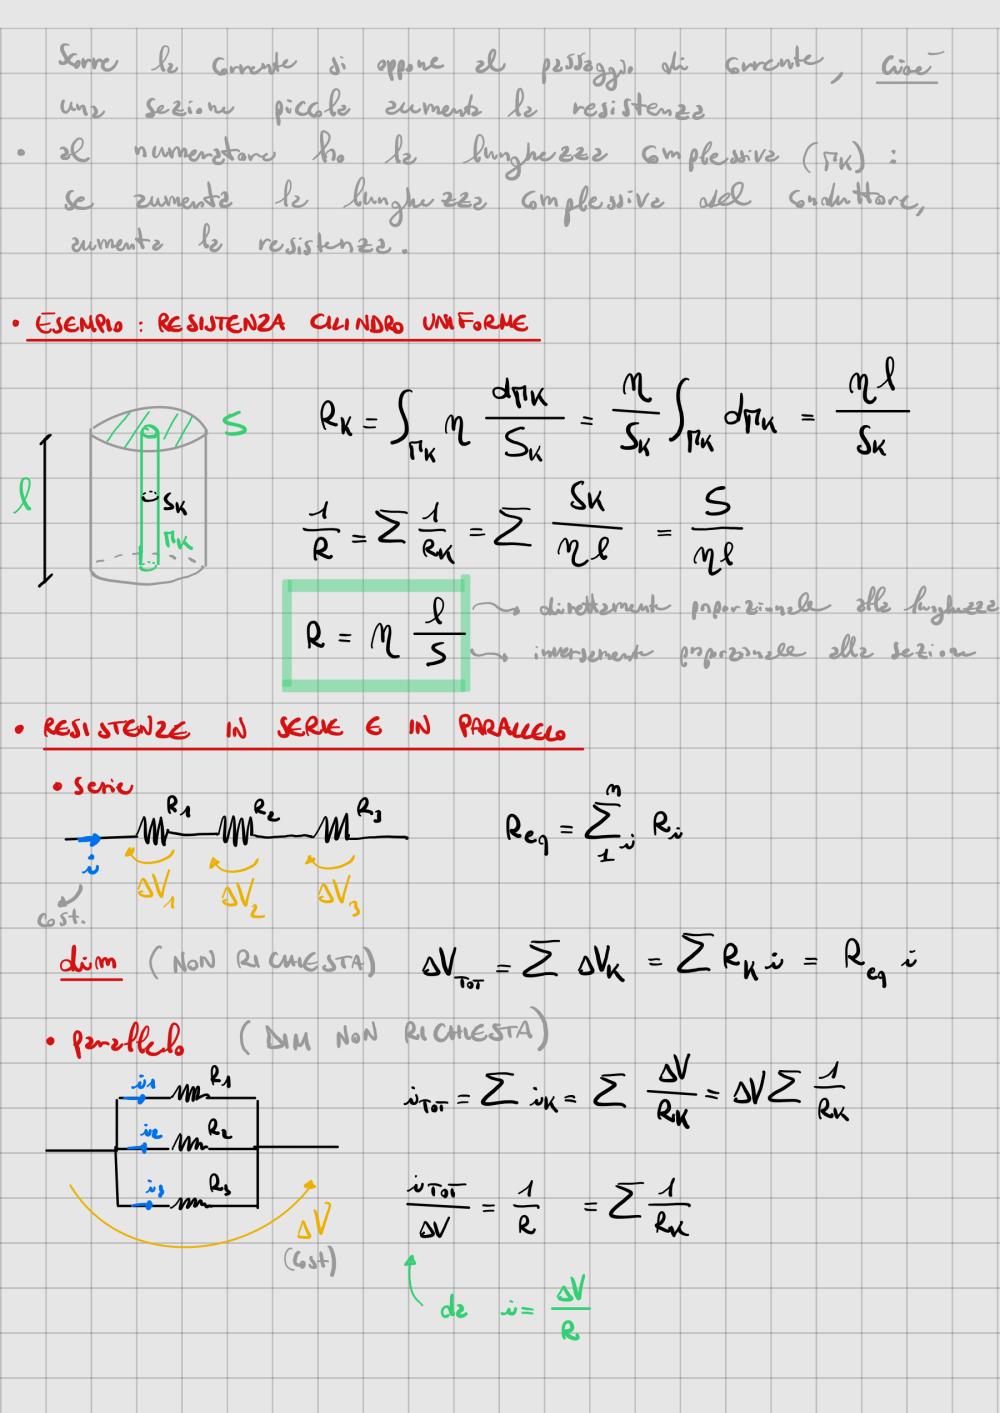 scorre la corrente si oppone al passaggio di corrente, cioè
una sezione piccola aumenta la resistenza
• al numeratore ho la lunghezza complessiva (ΓK) :
se aumenta la lunghezza complessiva del conduttore,
aumenta la resistenza.
• ESEMPIO : RESISTENZA CILINDRO UNIFORME
S
l
SK
ΓK
RK = ∫ΓK η dΓK/SK = η/SK ∫ΓK dΓK = ηl/SK
1/R = Σ 1/RK = Σ SK/ηl = S/ηl
R = η l/S
direttamente proporzionale alla lunghezza
inversamente proporzionale alla sezione
• RESISTENZE IN SERIE E IN PARALLELO
• serie
R1 R2 R3
i
ΔV1 ΔV2 ΔV3
cost.
Req = Σ1i^n Ri
dim (NON RICHIESTA) ΔVTOT = Σ ΔVK = Σ RK i = Req i
• parallelo (DIM NON RICHIESTA)
i1 R1
i2 R2
i3 R3
ΔV
(cost)
iTOT = Σ iK = Σ ΔV/RK = ΔV Σ 1/RK
iTOT/ΔV = 1/R = Σ 1/RK
da i = ΔV/R